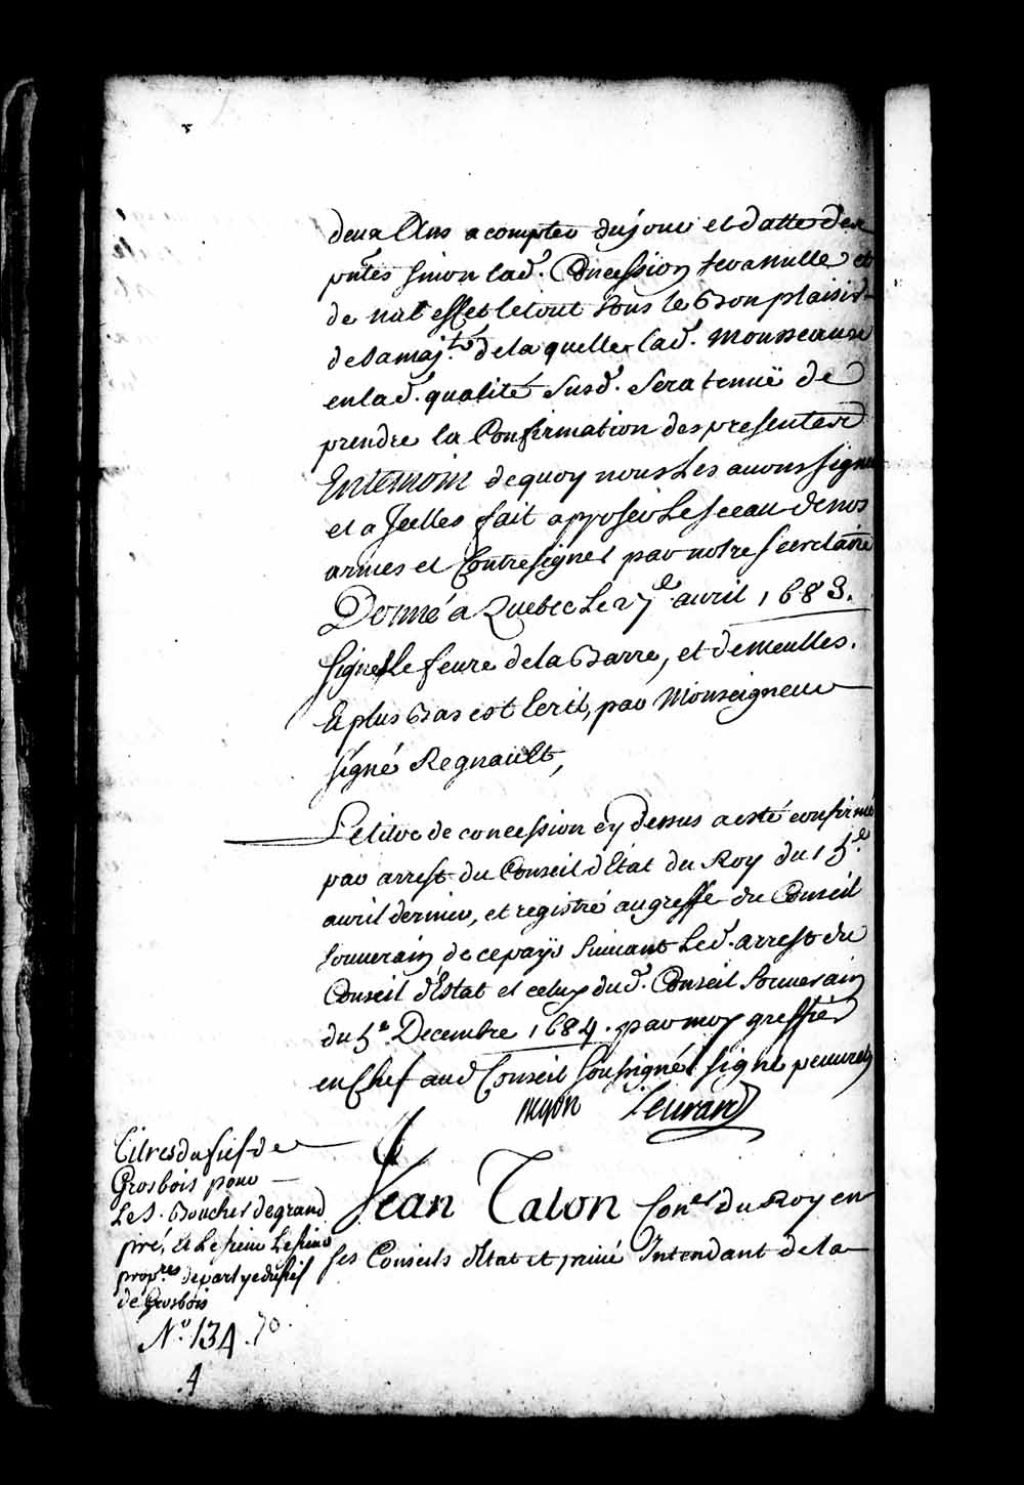 deux Ans a compter du jour et datte des
pntes sinon lad. Concession sera nulle et
de nul effet le tout sous le Bon plaisir
de Sa maj.té de laquelle lad. Mousseaux
en lad. qualité susd. sera tenuë de
prendre la Confirmation des presentes
En temoin de quoy nous Les avons signé
et a Jcelles fait apposer Le sceau de nos
armes et Contresigner par notre secretaire
Donné a Quebec Le 27e avril 1683.
signé Le febure de la Barre, et demeulles.
Et plus Bas est Ecrit, par Monseigneur
signé Regnault,
Le titre de concession cy dessus a esté confirmé
par arrest du Conseil d'Etat du Roy du 15.e
avril dernier, et registré au greffe du Conseil
souverain de ce païs suivant Led. arrest du
Conseil d'Estat et celuy dud. Conseil Souverain
du 5.e Decembre 1684. par moy greffier
en Chef aud Conseil soussigné signé peuuret
Jean Talon Con.er du Roy en
ses Conseils d'Etat et privé Intendant de la
Titres du fief de
Grosbois pour
Le S. Boucher de grand
pré, et Le sieur Lesieur
prop.res de partye du fief
de Grosbois
N.o 134. 70.
4